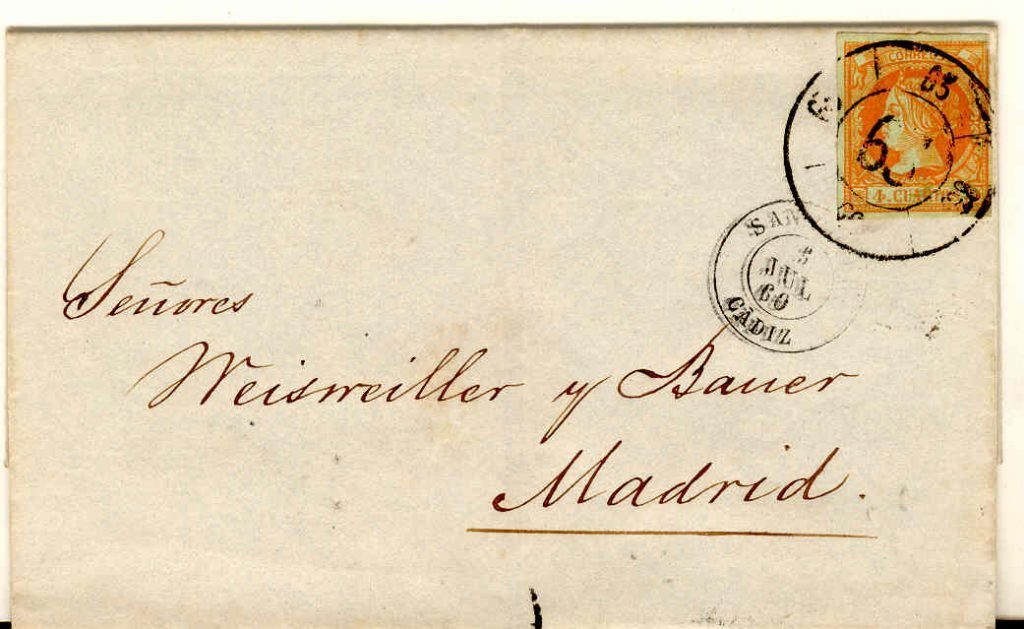 CORREOS
63
63
63
63
63
4. CUARTOS
SAN
5
JUL
60
CADIZ
Señores
Weisweiller y Bauer
Madrid.